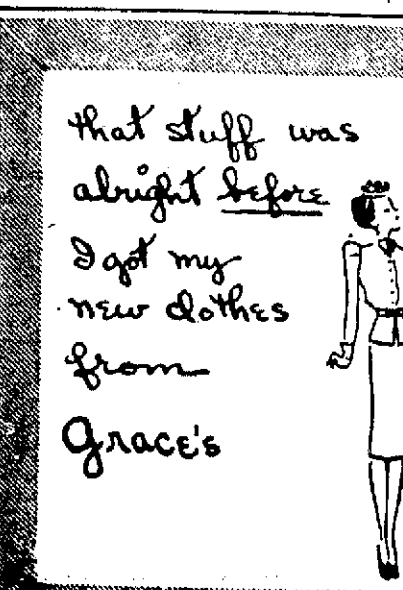 that stuff was
alright before
I got my
new clothes
from
Grace's